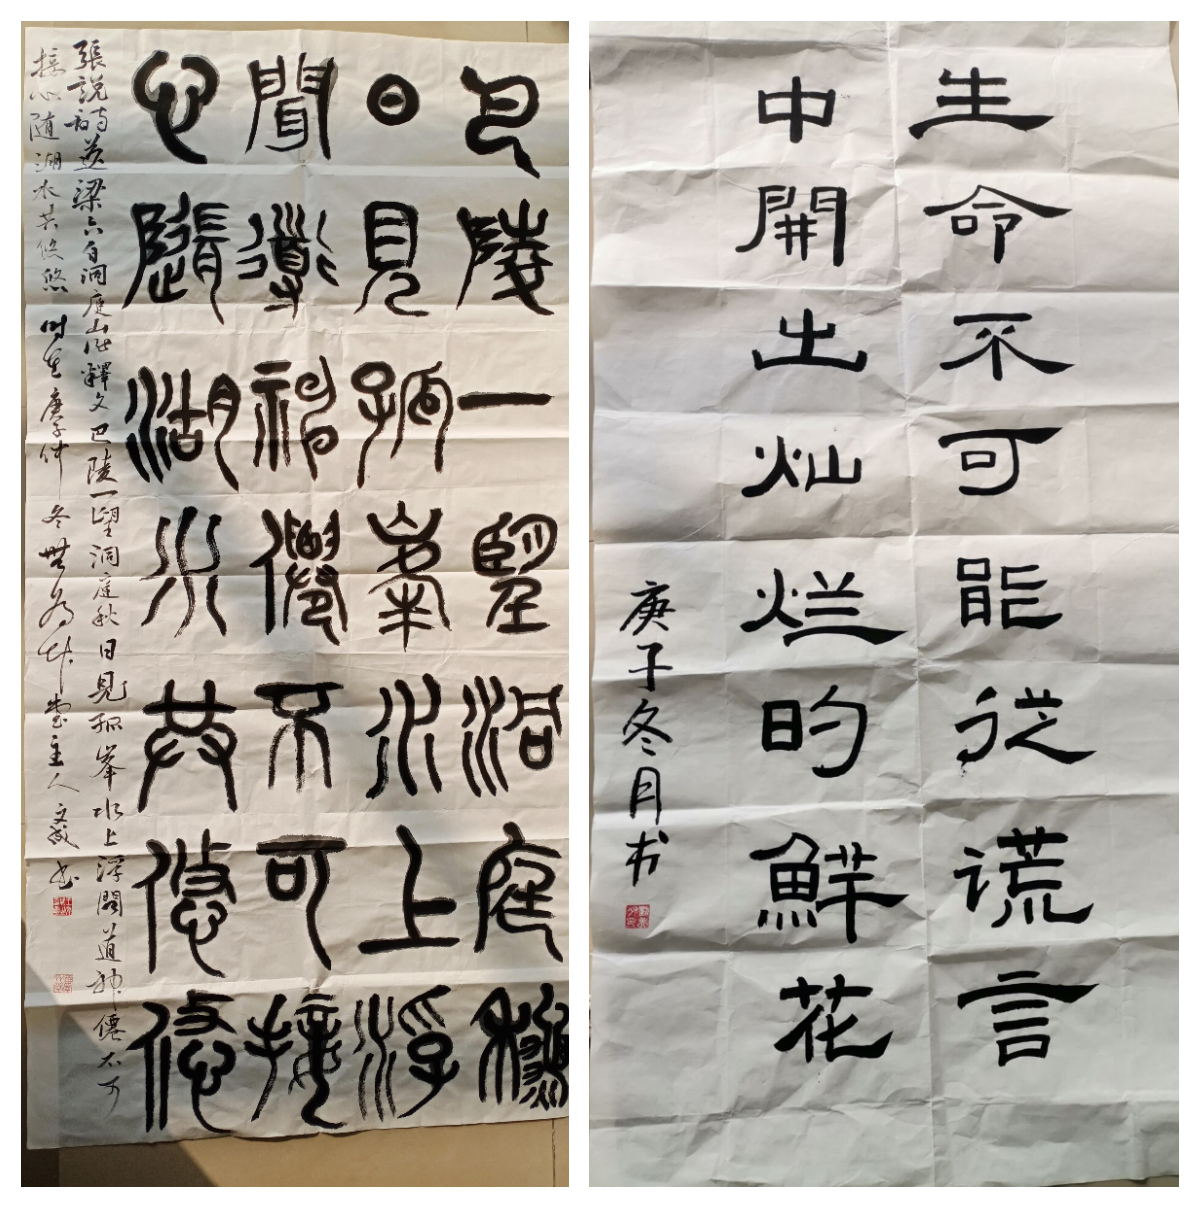 巴陵一望洞庭秋
日見孤峯水上浮
聞道神僊不可接
心隨湖水共悠悠
張說詩送梁六自洞庭山作釋文巴陵一望洞庭秋日見孤峯水上浮聞道神僊不可
接心随湖水共悠悠时在庚子仲冬無为草堂主人书
生命不可能従谎言
中開出灿烂的鮮花
庚子冬月书